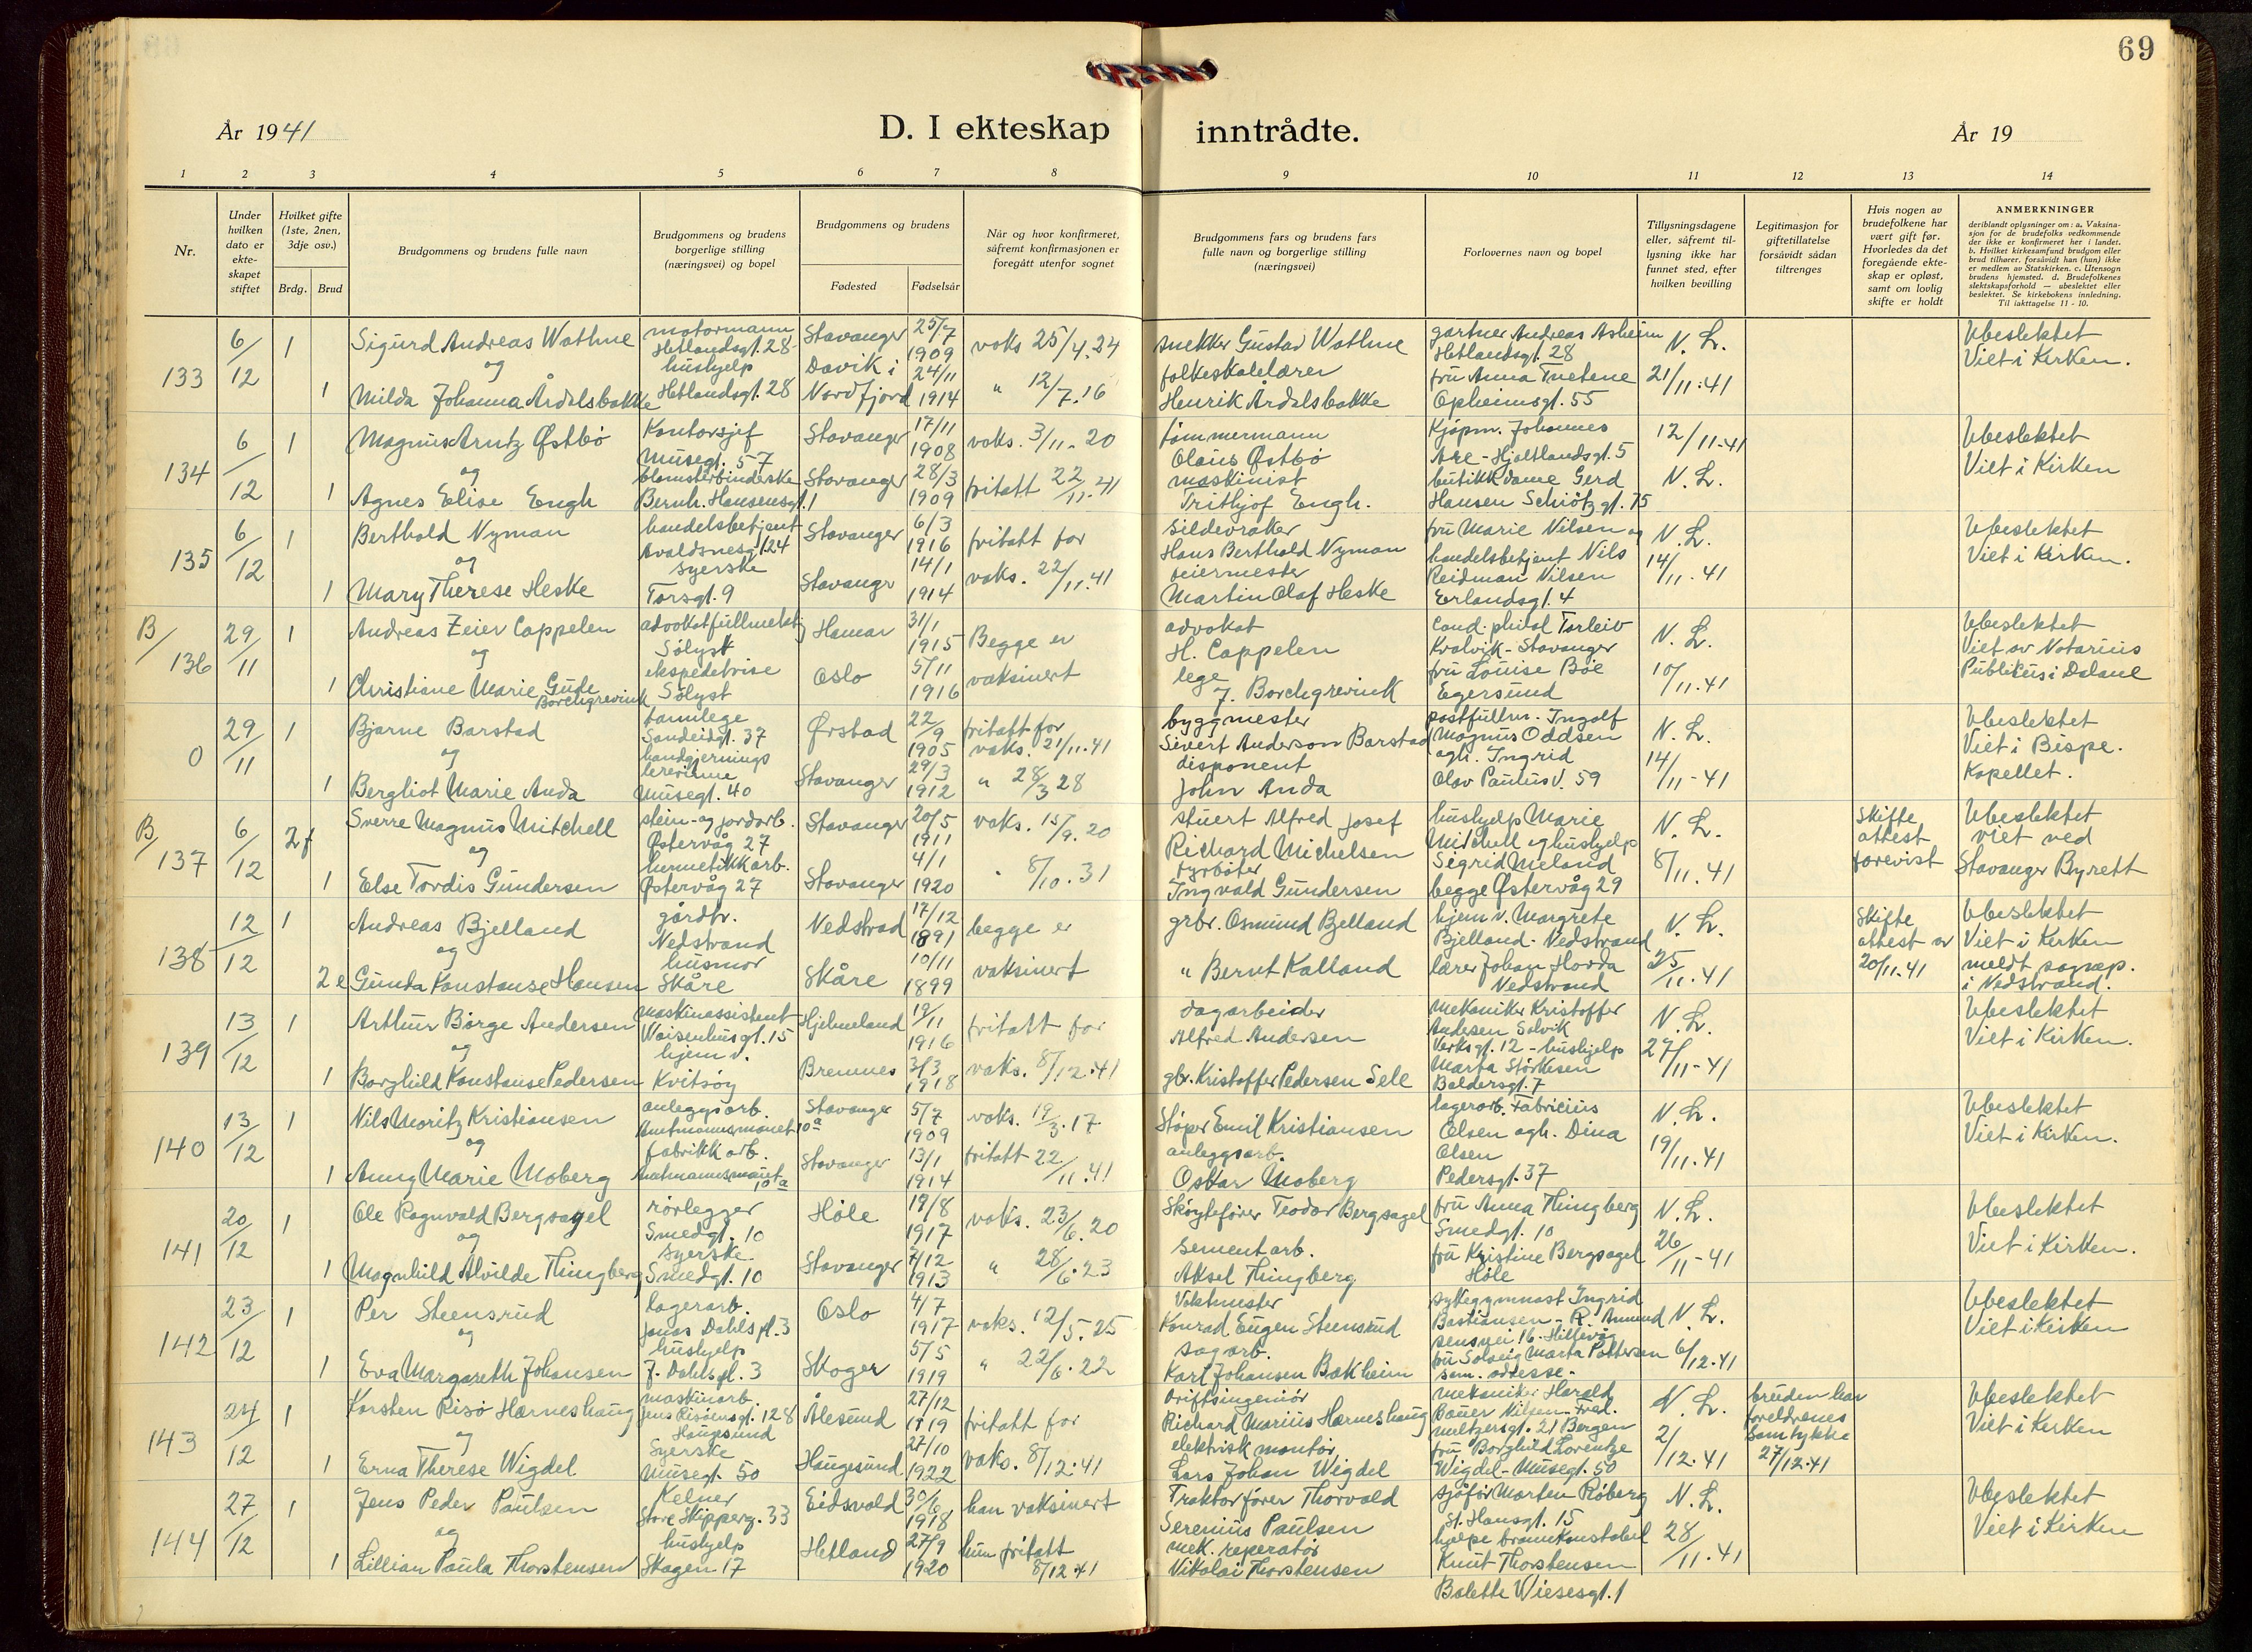 69
År 1941
D. I ekteskap inntrådte.
År 19
1 2 3 4 5 6 7 8 9 10 11 12 13 14
Nr.
Under hvilken dato er ekte-skapet stiftet
Hvilket gifte (1ste, 2nen, 3dje osv.)
Brdg. Brud
Brudgommens og brudens fulle navn
Brudgommens og brudens borgerlige stilling (næringsvei) og bopel
Brudgommens og brudens
Fødested Fødselsår
Når og hvor konfirmeret, såfremt konfirmasjonen er foregått utenfor sognet
Brudgommens fars og brudens fars fulle navn og borgerlige stilling (næringsvei)
Forlovernes navn og bopel
Tillysningsdagene eller, såfremt til-lysning ikke har funnet sted, efter hvilken bevilling
Legitimasjon for giftetillatelse forsåvidt sådan tiltrenges
Hvis nogen av brudefolkene har vært gift før. Hvorledes da det foregående ekte-skap er opløst, samt om lovlig skifte er holdt
ANMERKNINGER
deriblandt oplysninger om: a. Vaksina-sjon for de brudefolks vedkommende der ikke er konfirmeret her i landet. b. Hvilket kirkesamfund brudgom eller brud tilhører, forsåvidt han (hun) ikke er medlem av Statskirken. c. Utensogn brudens hjemsted. d. Brudefolkenes slektskapsforhold — ubeslektet eller beslektet. Se kirkebokens innledning. Til iakttagelse 11 - 10.
133 6/12 1 Sigurd Andreas Wathne motormann Hetlandsgt. 28 Stavanger 25/7 1909 vaks 25/4.24 snekker Gustav Wathne gartner Andreas Asheim Hetlandsgt. 28 N. L. Ubeslektet Viet i Kirken.
og
1 Milda Johanna Årdalsbakke hushjelp Hetlandsgt. 28 Davik i Nordfjord 24/11 1914 " 12/7.16 folkeskolelærer Henrik Årdalsbakke fru Anna Tnetene Opheimsgt. 55 21/11.41
134 6/12 1 Magnus Arntz Østbø Kontorsjef Musegt. 57 Stavanger 17/11 1908 vaks. 3/11.20 tømmermann Olaus Østbø Kjøpm. Johannes Are - Hjaltlandsgt. 5 12/11.41 Ubeslektet Viet i Kirken
og
1 Agnes Elise Engh blomsterbinderske Bernh. Hansensgt. 1 Stavanger 28/3 1909 fritatt 22/11.41 maskinist Trithjof Engh. butikkdame Gerd Hansen Schiøtz gt. 75 N. L.
135 6/12 1 Berthold Nyman handelsbetjent Avaldsnesgt. 24 Stavanger 6/3 1916 fritatt for sildevraker Hans Berthold Nyman fru Marie Nilsen og N. L. Ubeslektet Viet i Kirken.
og
1 Mary Therese Heske syerske Torsgt. 9 Stavanger 14/1 1914 vaks. 22/11.41 feiermester Martin Olaf Heske handelsbetjent Nils Reidman Nilsen Erlandsgt. 4 14/11.41
B/136 29/11 1 Andreas Zeier Cappelen advokatfullmektig Sølyst Hamar 31/1 1915 Begge er advokat H. Cappelen Cand. philol Torleiv Kvalvik - Stavanger N. L. Ubeslektet Viet av Notarius Publikus i Dalane
og
1 Christiane Marie Gude Borchgrevink ekspedetrise Sølyst Oslo 5/11 1916 vaksinert lege J. Borchgrevink fru Louise Bøe Egersund 10/11.41
0 29/11 1 Bjarne Barstad tannlege Sandeidgt. 37 Ørstad 22/9 1905 fritatt for vaks. 21/11.41 byggmester Sivert Anderson Barstad postfullm. Ingolf Magnus Oddsen N. L. Ubeslektet Viet i Bispe. Kapellet.
og
1 Bergliot Marie Anda handgjernings lærerinne Musegt. 40 Stavanger 29/3 1912 " 28/3 28 disponent John Anda ogh. Ingrid Olav Paulus V. 59 14/11-41
B/137 6/12 2f Sverre Magnus Mitchell stein- og jordarb. Østervåg 27 Stavanger 20/5 1911 vaks. 15/9.20 stuert Alfred Josef Richard Michelsen hushjelp Marie Mitchell og hushjelp N. L. Skifte attest forevist Ubeslektet viet ved Stavanger Byrett
og
1 Else Tordis Gundersen hermetikkarb. Østervåg 27 Stavanger 4/1 1920 " 8/10.31 fyrbøter Ingvald Gundersen Sigrid Meland begge Østervåg 29 8/11.41
138 12/12 1 Andreas Bjelland gårdbr. Nedstrand Nedstrad 17/12 1891 begge er grbr. Osmund Bjelland hjem v. Margrete Bjelland. Nedstrand N. L. Skifte attest av 20/11.41 Ubeslektet Viet i Kirken meldt sognep. i Nedstrand.
og
2 e Gunda Konstanse Hansen husmor Skåre Skåre 10/11 1899 vaksinert " Bernt Kalland lærer Johan Hovda Nedstrand 25/11.41
139 13/12 1 Arthur Børge Andersen maskinassistent Waisenhusgt. 15 Hjelmeland 19/11 1916 fritatt for dagarbeider Alfred Andersen Mekaniker Kristoffer Andersen Solvik Verksgt. 12 - hushjelp N. L. Ubeslektet Viet i Kirken.
og
1 Borghild Konstanse Pedersen hjem v. Kvitsøy Bremnes 3/3 1918 vaks. 8/12.41 gbr. Kristoffer Pedersen Sele Marta Størkesen Baldersgt. 7 27/11-41
140 13/12 1 Nils Moritz Kristiansen anleggsarb. Amtmannsmarket 10a Stavanger 5/7 1909 vaks. 19/3.17 Støper Emil Kristiansen lagerarb. Fabricius Olsen ogh. Dina N. L. Ubeslektet Viet i Kirken.
og
1 Anny Marie Moberg fabrikkarb. 10a Stavanger 13/1 1914 fritatt 22/11.41 anleggsarb. Oskar Moberg Olsen Pedersgt. 37 19/11.41
141 20/12 1 Ole Ragnvald Bergsagel rørlegger Smedgt. 10 Høle 19/8 1917 vaks. 23/6.20 Skøytefører Teodor Bergsagel fru Anna Thingberg Smedgt. 10 N. L. Ubeslektet Viet i Kirken.
og
1 Magnhild Alvilde Thingberg syerske Smedgt. 10 Stavanger 7/12 1913 " 28/6.23 sementarb. Aksel Thingberg fru Kristine Bergsagel Høle 26/11-41
142 23/12 1 Per Steensrud lagerarb. Jonas Dahls pl. 3 Oslo 4/7 1917 vaks. 12/5.25 Vaktmester Konrad Eugen Steensrud sykegymnast Ingrid Bastiansen - R. Amund sensvei 16. Hillevåg N. L. Ubeslektet Viet i Kirken
og
1 Eva Margareth Johansen hushjelp J. Dahls pl. 3 Skoger 5/5 1919 " 22/6.22 sagarb. Karl Johansen Bakheim fru Solveig Marta Pettersen sam. adresse. 6/12.41
143 24/12 1 Karsten Risø Hærneshaug maskinarb. Jens Risøensgt. 128 Haugesund Ålesund 27/12 1919 fritatt for Driftsingeniør Richard Marius Hærneshaug mekaniker Harald Bauer Nilsen - Fred. meltzersgt. 21 Bergen N. L. bruden har foreldrenes samtykke 27/12.41 Ubeslektet Viet i Kirken
og
1 Erna Therese Wigdel Syerske Musegt. 50 Haugesund 27/10 1922 vaks. 8/12.41 elektrisk montør Lars Johan Wigdel fru Borghild Lorentze Wigdel - Musegt. 50 2/12.41
144 27/12 1 Jens Peder Paulsen Kelner Store Skipperg. 33 Eidsvold 30/6 1918 han vaksinert Traktorfører Thorvald Serenius Paulsen sjåfør Morten Røberg St. Hansgt. 15 N. L. Ubeslektet Viet i Kirken
og
1 Lillian Paula Thorstensen hushjelp Skagen 17 Hetland 27/9 1920 hun fritatt 8/12 41 mek. reperatør Nikolai Thorstensen hjelpe brannkonstabel Knut Thorstensen Bolette Wiesesgt. 1 28/11.41